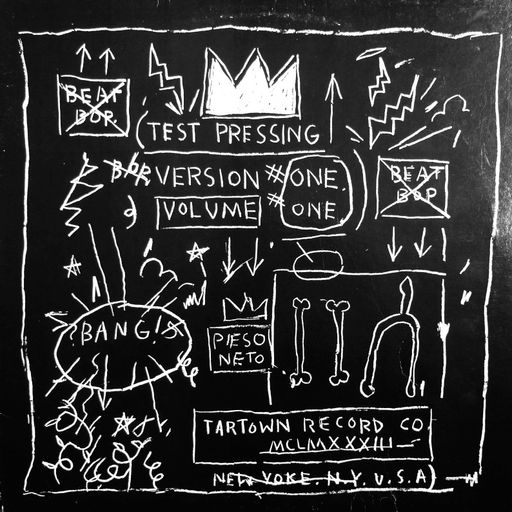 BEAT
BOP
TEST PRESSING
BOP VERSION #ONE
VOLUME #ONE
BEAT
BOP
BANG!
PIESO
NETO
TARTOWN RECORD CO.
MCLMXXXIII
NEW YOKE. N.Y. U.S.A